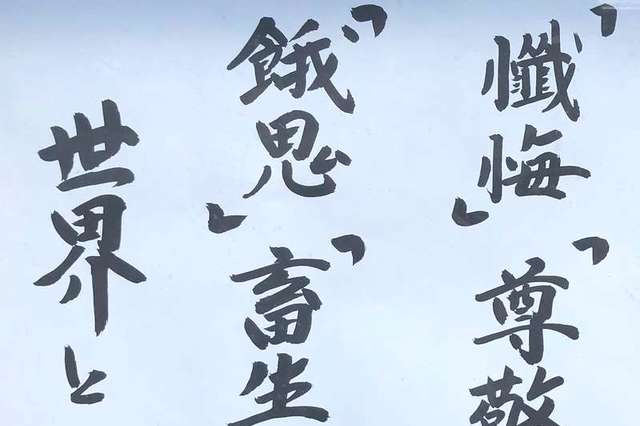 「懺悔」「尊敬
「餓鬼」「畜生
世界と